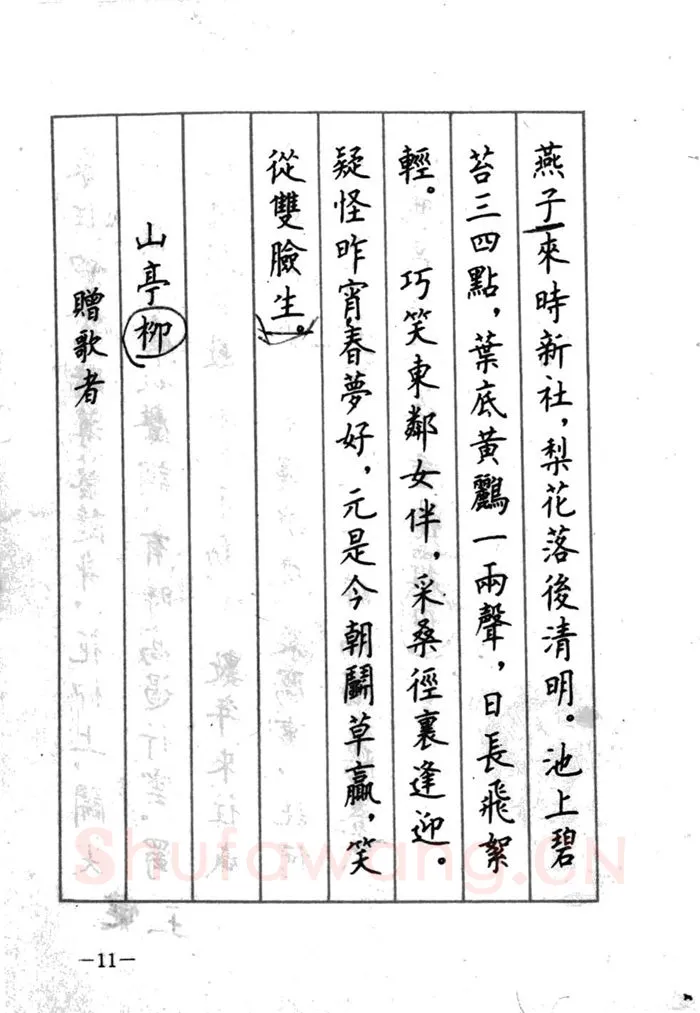 燕子來時新社，梨花落後清明。池上碧
苔三四點，葉底黃鸝一兩聲，日長飛絮
輕。　巧笑東鄰女伴，采桑徑裏逢迎。
疑怪昨宵春夢好，元是今朝鬭草贏，笑
從雙臉生。
山亭柳
贈歌者
—11—
Shufawang.CN